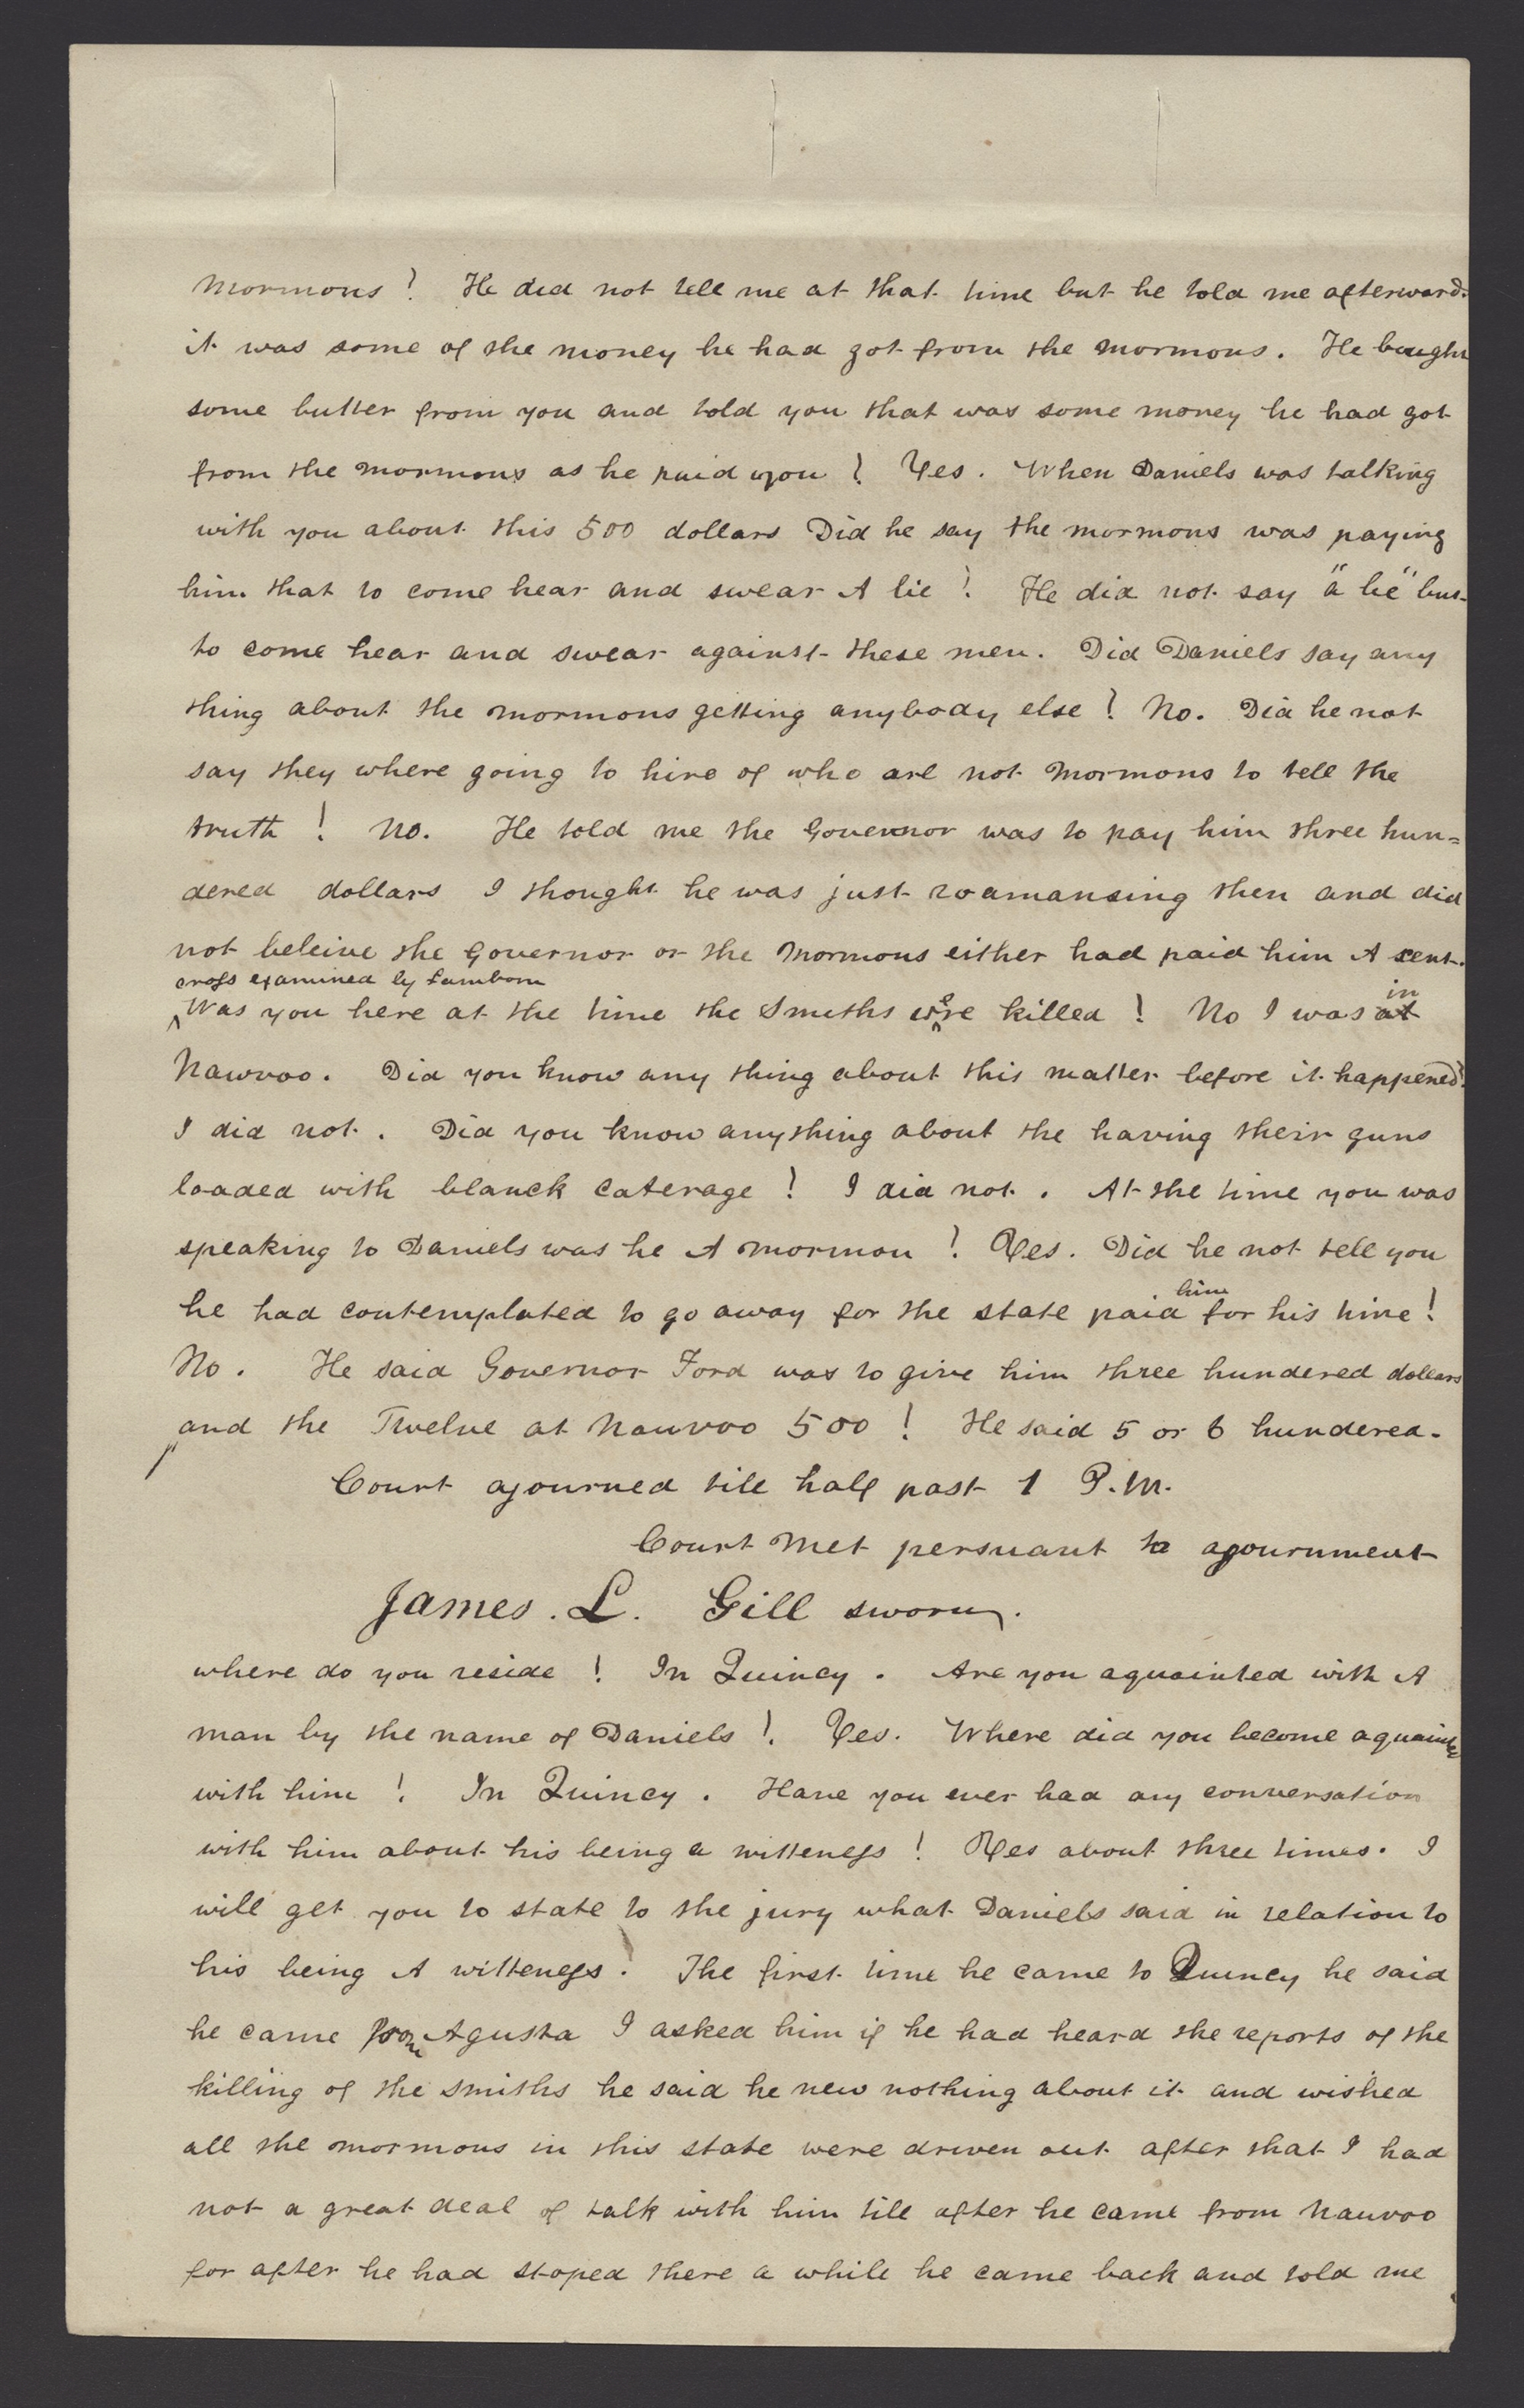 mormons ! He did not tell me at that time but he told me afterward.
it was some of the money he had got from the mormons. He bought
some butter from you and told you that was some money he had got
from the mormons as he paid you ! Yes. When Daniels was talking
with you about this 500 dollars Did he say the mormons was paying
him that to come hear and swear A lie ! He did not say "a lie" but
to come hear and swear against these men. Did Daniels say any
thing about the mormons getting anybody else ! No. Did he not
say they where going to hire of who are not mormons to tell the
truth ! No. He told me the Governor was to pay him three hun=
dered dollars I thought he was just roamansing then and did
not beleive the Governor or the mormons either had paid him A cent.
cross examined by Lamborn
Was you here at the time the Smiths were killed ! No I was at in
Nawvoo. Did you know any thing about this matter before it happened!
I did not. Did you know anything about the having their guns
loaded with blanck caterage ! I did not. At the time you was
speaking to Daniels was he A mormon ! Yes. Did he not tell you
he had contemplated to go away for the state paid him for his time !
No. He said Governor Ford was to give him three hundered dollars
and the Twelve at Nauvoo 500 ! He said 5 or 6 hundered.
Court ajourned till half past 1 P.M.
Court met persuant to ajournment
James. L. Gill sworn.
where do you reside ! In Quincy. Are you aquainted with A
man by the name of Daniels ! Yes. Where did you become aquainted
with him ! In Quincy. Have you ever had any conversation
with him about his being a witteness ! Yes about three times. I
will get you to state to the jury what Daniels said in relation to
his being A witteness ! The first time he came to Quincy he said
he came from Agusta I asked him if he had heard the reports of the
killing of the smiths he said he new nothing about it and wished
all the mormons in this state were driven out after that I had
not a great deal of talk with him till after he came from Nauvoo
for after he had stoped there a while he came back and told me